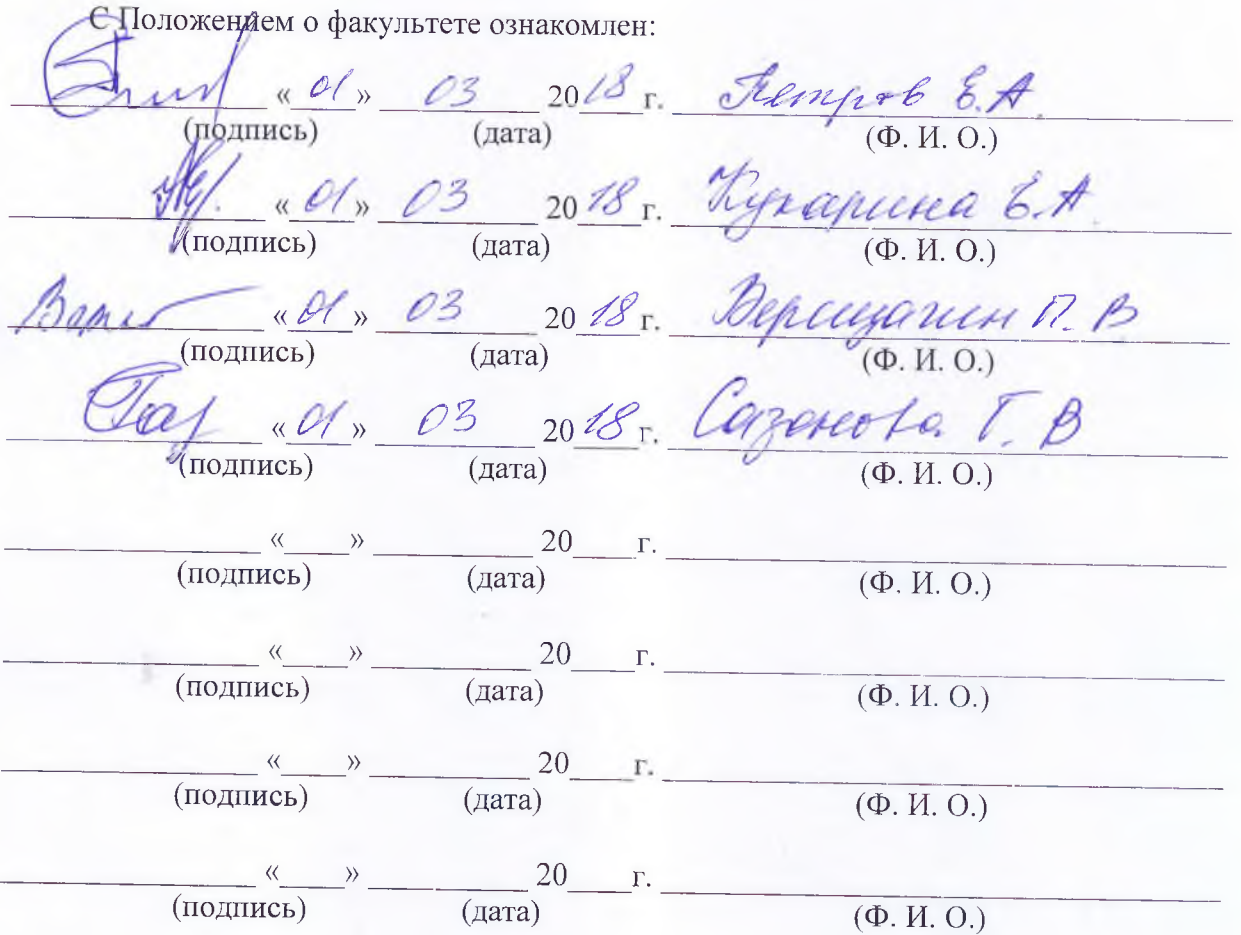 С Положением о факультете ознакомлен:
«01» 03 2018 г. Петров Е.А.
(подпись) (дата) (Ф. И. О.)
«01» 03 2018 г. Кукарина Е.А.
(подпись) (дата) (Ф. И. О.)
«01» 03 2018 г. Верещагин П. В
(подпись) (дата) (Ф. И. О.)
«01» 03 2018 г. Сазонова Г. В
(подпись) (дата) (Ф. И. О.)
«____» ________ 20___ г. ________
(подпись) (дата) (Ф. И. О.)
«____» ________ 20___ г. ________
(подпись) (дата) (Ф. И. О.)
«____» ________ 20___ г. ________
(подпись) (дата) (Ф. И. О.)
«____» ________ 20___ г. ________
(подпись) (дата) (Ф. И. О.)